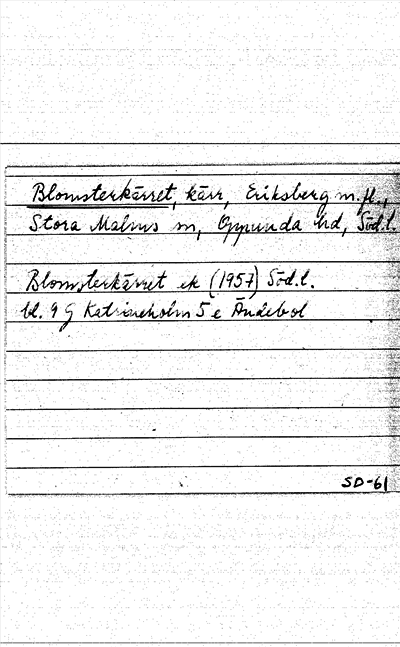 Blomsterkärret, kärr, Eriksberg m.fl.,
Stora Malms sn, Oppunda hd, Södl.
Blomsterkärret ek (1957) Södl.
bl. 9 G Katrineholm 5 e Ändebol
SD-61